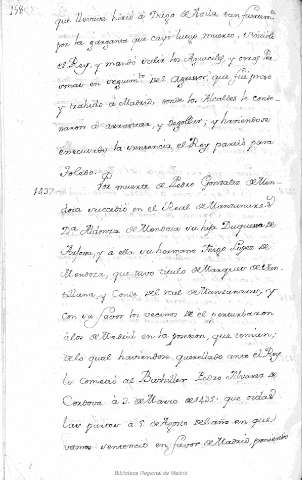 198
que Herrera hirió à Diego de Avila tan fuertem.te
por la garganta que cayó luego muerto,
el Rey, y mandó salir los Aposenta, y otras Per
sonas en seguim.to del Agresor, que fué preso
y trahido à Madrid, donde los Alcaldes le conde
naron à arrastrar, y degollar; y haviendose
executado la sentencia, el Rey partió para
Toledo.
1437 Por muerte de Pedro Gonzalez de Men
doza succedió en el Real de Manzanares
D.a Aldonza de Mendoza su hija Duquesa de
Arjona, y a ella su hermano Iñigo Lopez de
Mendoza, que tuvo titulo de Marques de San
tillana, y Conde del Real de Manzanares; y
con su favor los vecinos de él perturbaron
à los de Madrid en la posesion, que tenian;
de lo qual haviendose querellado ante el Rey
lo cometió al Bachiller Pedro Alvarez de
Cordova à 2. de Marzo de 1435. que oidas
las partes à 5. de Agosto del año en que
vamos sentenció en favor de Madrid,
Biblioteca Regional de Madrid